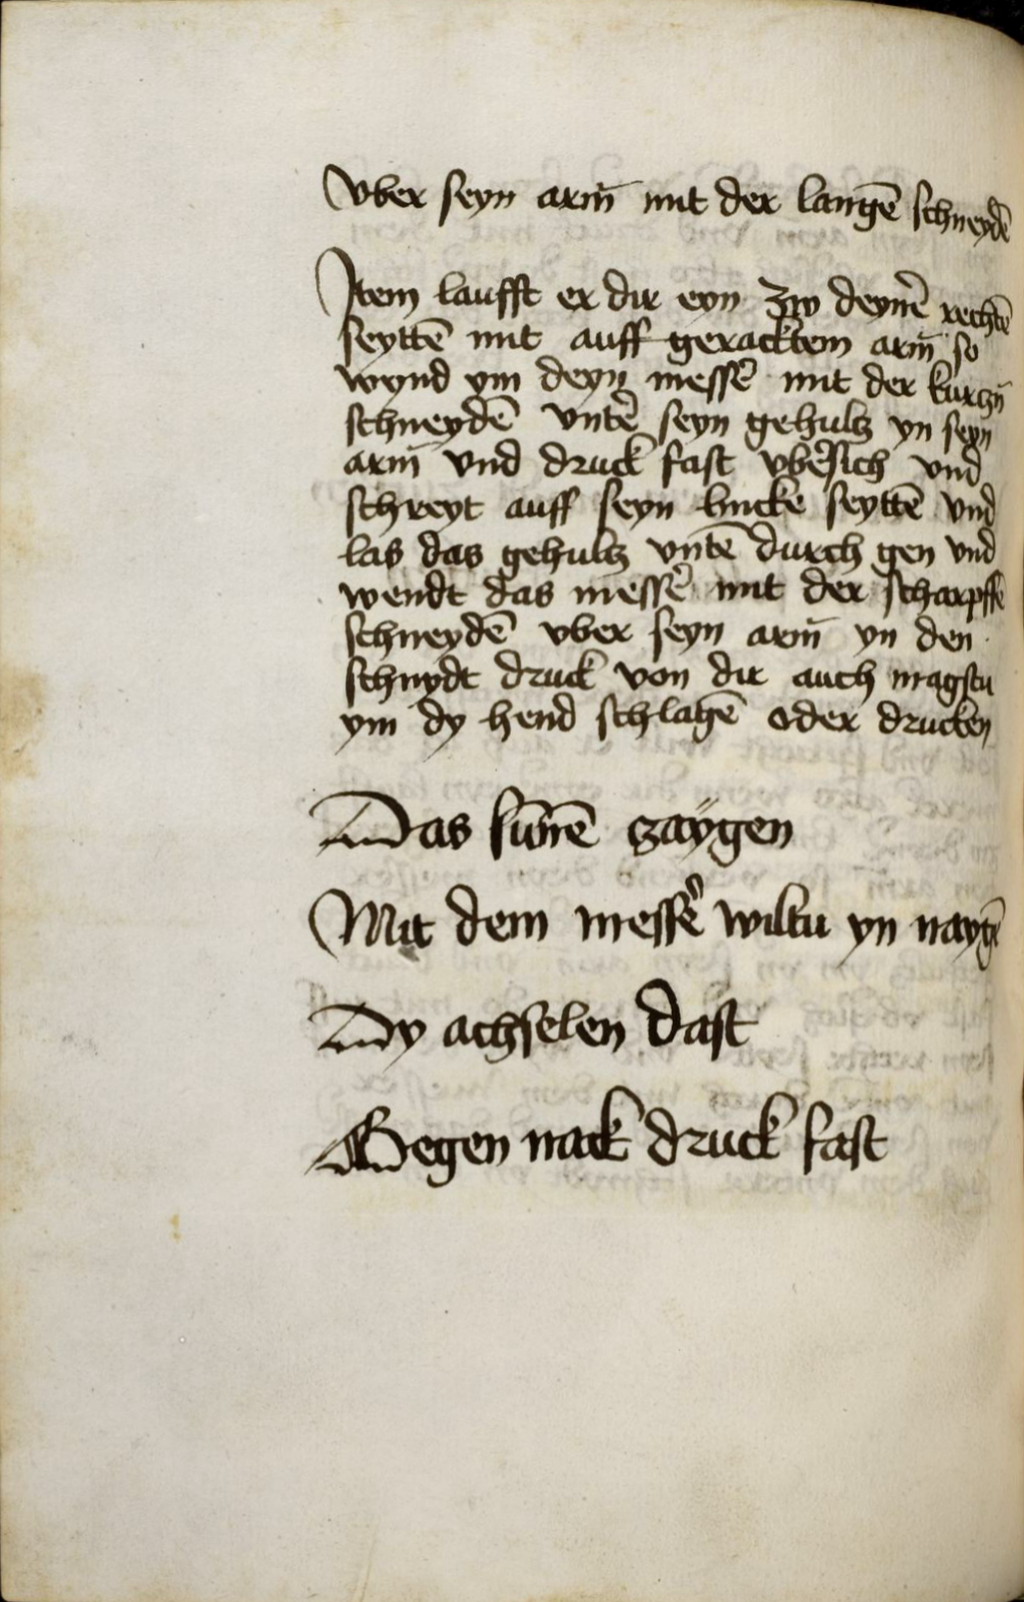 Vber seyn arm̄ mit der langē schneydē
Item laufft er dir eyn zw deyner̄ rechtē
seyttē mit auff geracktem arm̄ so
wynd ym deyn messer̄ mit der kurczn̄
schneydē vnter̄ seyn gehulcz yn seyn
arm̄ vnd druck fast vber̄sich vnd
schreyt auff seyn lincke seyttē vnd
las das gehulcz vntē durch gen vnd
wendt das messer̄ mit der scharpffē
schneydē vber seyn arm̄ yn den
schnydt druck von dir auch magstu
ym dy hend schlahē oder drucken
Das sūnē zaÿgen
Mit dem messer̄ wiltu yn naygē
Dy achselen dast
Gegen nack druck fast